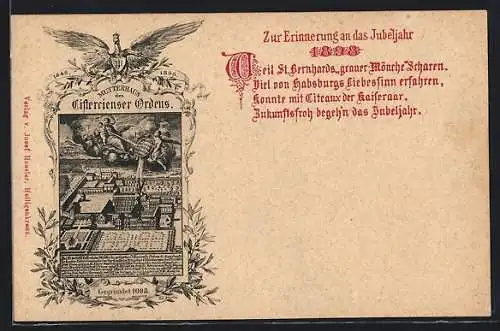 Zur Erinnerung an das Jubeljahr
1898
Weil St. Bernhards „grauer Mönche“ Scharen.
Viel von Habsburgs Liebessinn erfahren,
Konnte mit Citeaux der Kaiseraar.
Zukunftsfroh begeh'n das Jubeljahr.
1848 1898
MUTTERHAUS
des
Cistercienser Ordens.
Gegründet 1098.
Verlag v. Josef Heusler, Heiligenkreuz.